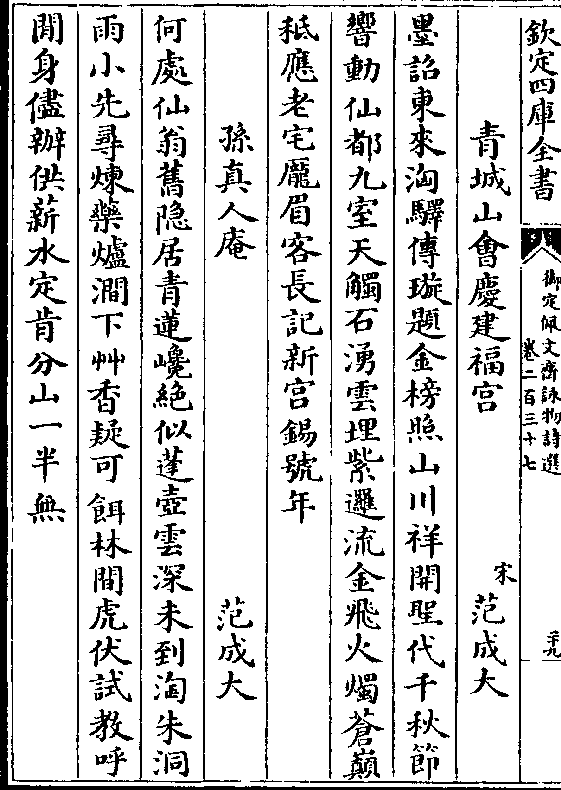 欽定四庫全書
御定佩文齋詠物詩選
卷二百三十七
二十九
青城山會慶建福宫
宋
范成大
墨詔東來洶驛傳璇題金榜照山川祥開聖代千秋節
響動仙都九室天觸石湧雲埋紫邏流金飛火燭蒼巔
秪應老宅龎眉客長記新宫錫號年
孫真人庵
范成大
何處仙翁舊隐居青蓮巉絶似蓬壺雲深未到淘朱洞
雨小先尋煉藥爐澗下艸香疑可餌林間虎伏試教呼
閒身儘辦供薪水定肯分山一半無